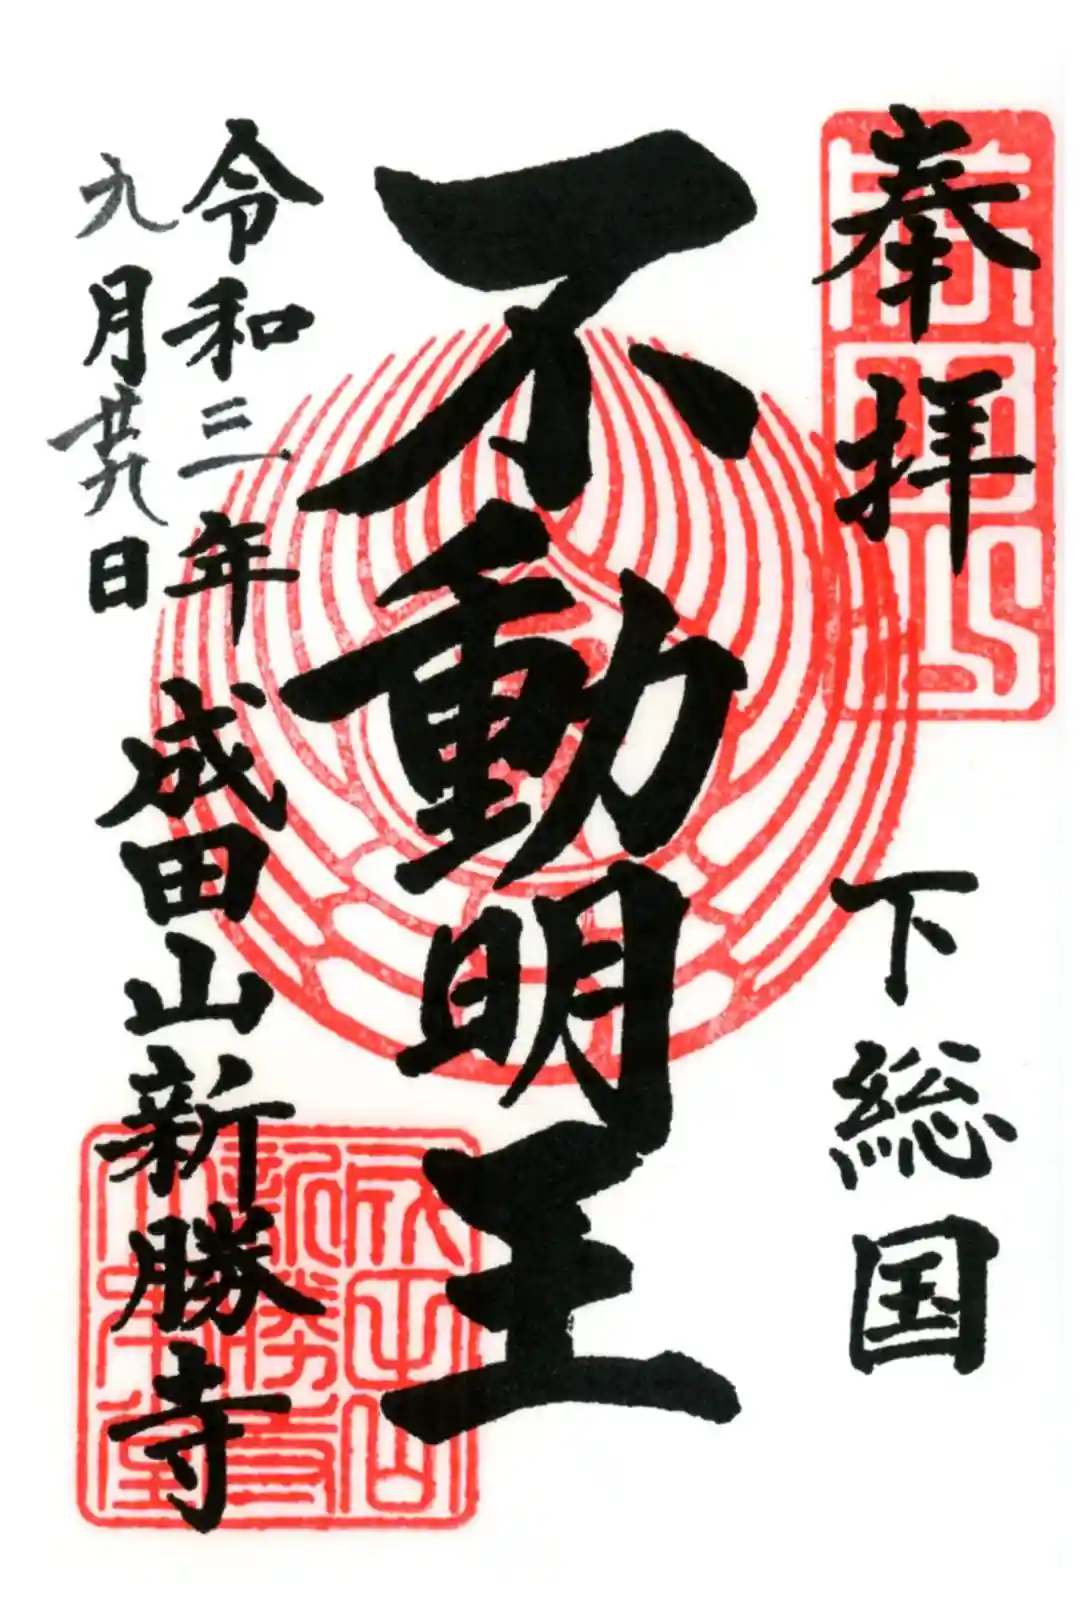 奉拝
下総国
不動明王
令和三年
九月廿九日
成田山新勝寺
成田山
新勝寺